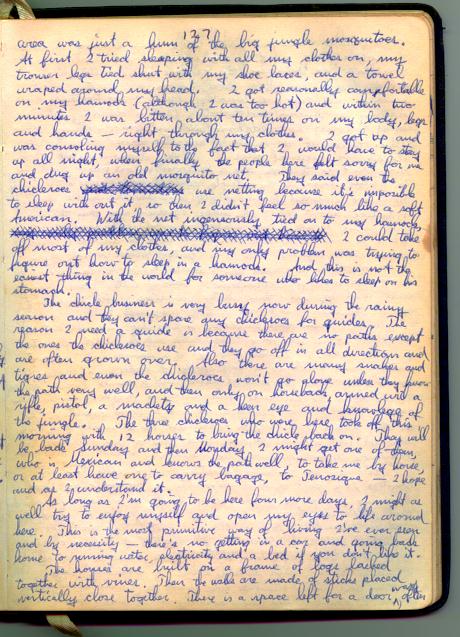 127
area was just a hum of the big jungle mosquitoes.
At first I tried sleeping with all my clothes on, my
trouser legs tied shut with my shoe laces, and a towel
wraped around my head. I got reasonably comfortable
on my hamock (although I was too hot) and within two
minutes I was bitten about ten times on my body, legs
and hands — right through my clothes. I got up and
was consoling myself to the fact that I would have to stay
up all night, when finally the people here felt sorry for me
and dug up an old mosquito net. They said even the
chicleros use netting because it's imposible
to sleep with out it, so then I didn't feel so much like a soft
American. With the net ingeniously tied on to my hamock
I could take
off most of my clothes, and my only problem was trying to
figure out how to sleep in a hamock. And this is not the
easiest thing in the world for someone who likes to sleep on his
stomach.
The chicle business is very busy now during the rainy
season and they can't spare any chicleros for guides. The
reason I need a guide is because there are no paths except
the ones the chicleros use and they go off in all directions and
are often grown over. Also there are many snakes and
tigres, and even the chicleros won't go alone unless they know
the path very well, and then only on horseback, armed with a
rifle, pistol, a machete and a keen eye and knowledge of
the jungle. The three chicleros who were here took off this
morning with 12 horses to bring the chicle back on. They will
be back Sunday and then Monday I might get one of them,
who is Mexican and knows the path well, to take me by horse,
or at least have one to carry bagage, to Tenosique — I hope
and as I understand it.
As long as I'm going to be here four more days I might as
well try to enjoy myself and open my eyes to life around
here. This is the most primitive way of living I've ever seen
and by necessity — there's no getting in a car and going back
home to running water, electricity and a bed if you don't like it.
The houses are built on a frame of logs lashed
together with vines. Then the walls are made of sticks placed
vertically close together. There is a space left for a door, often